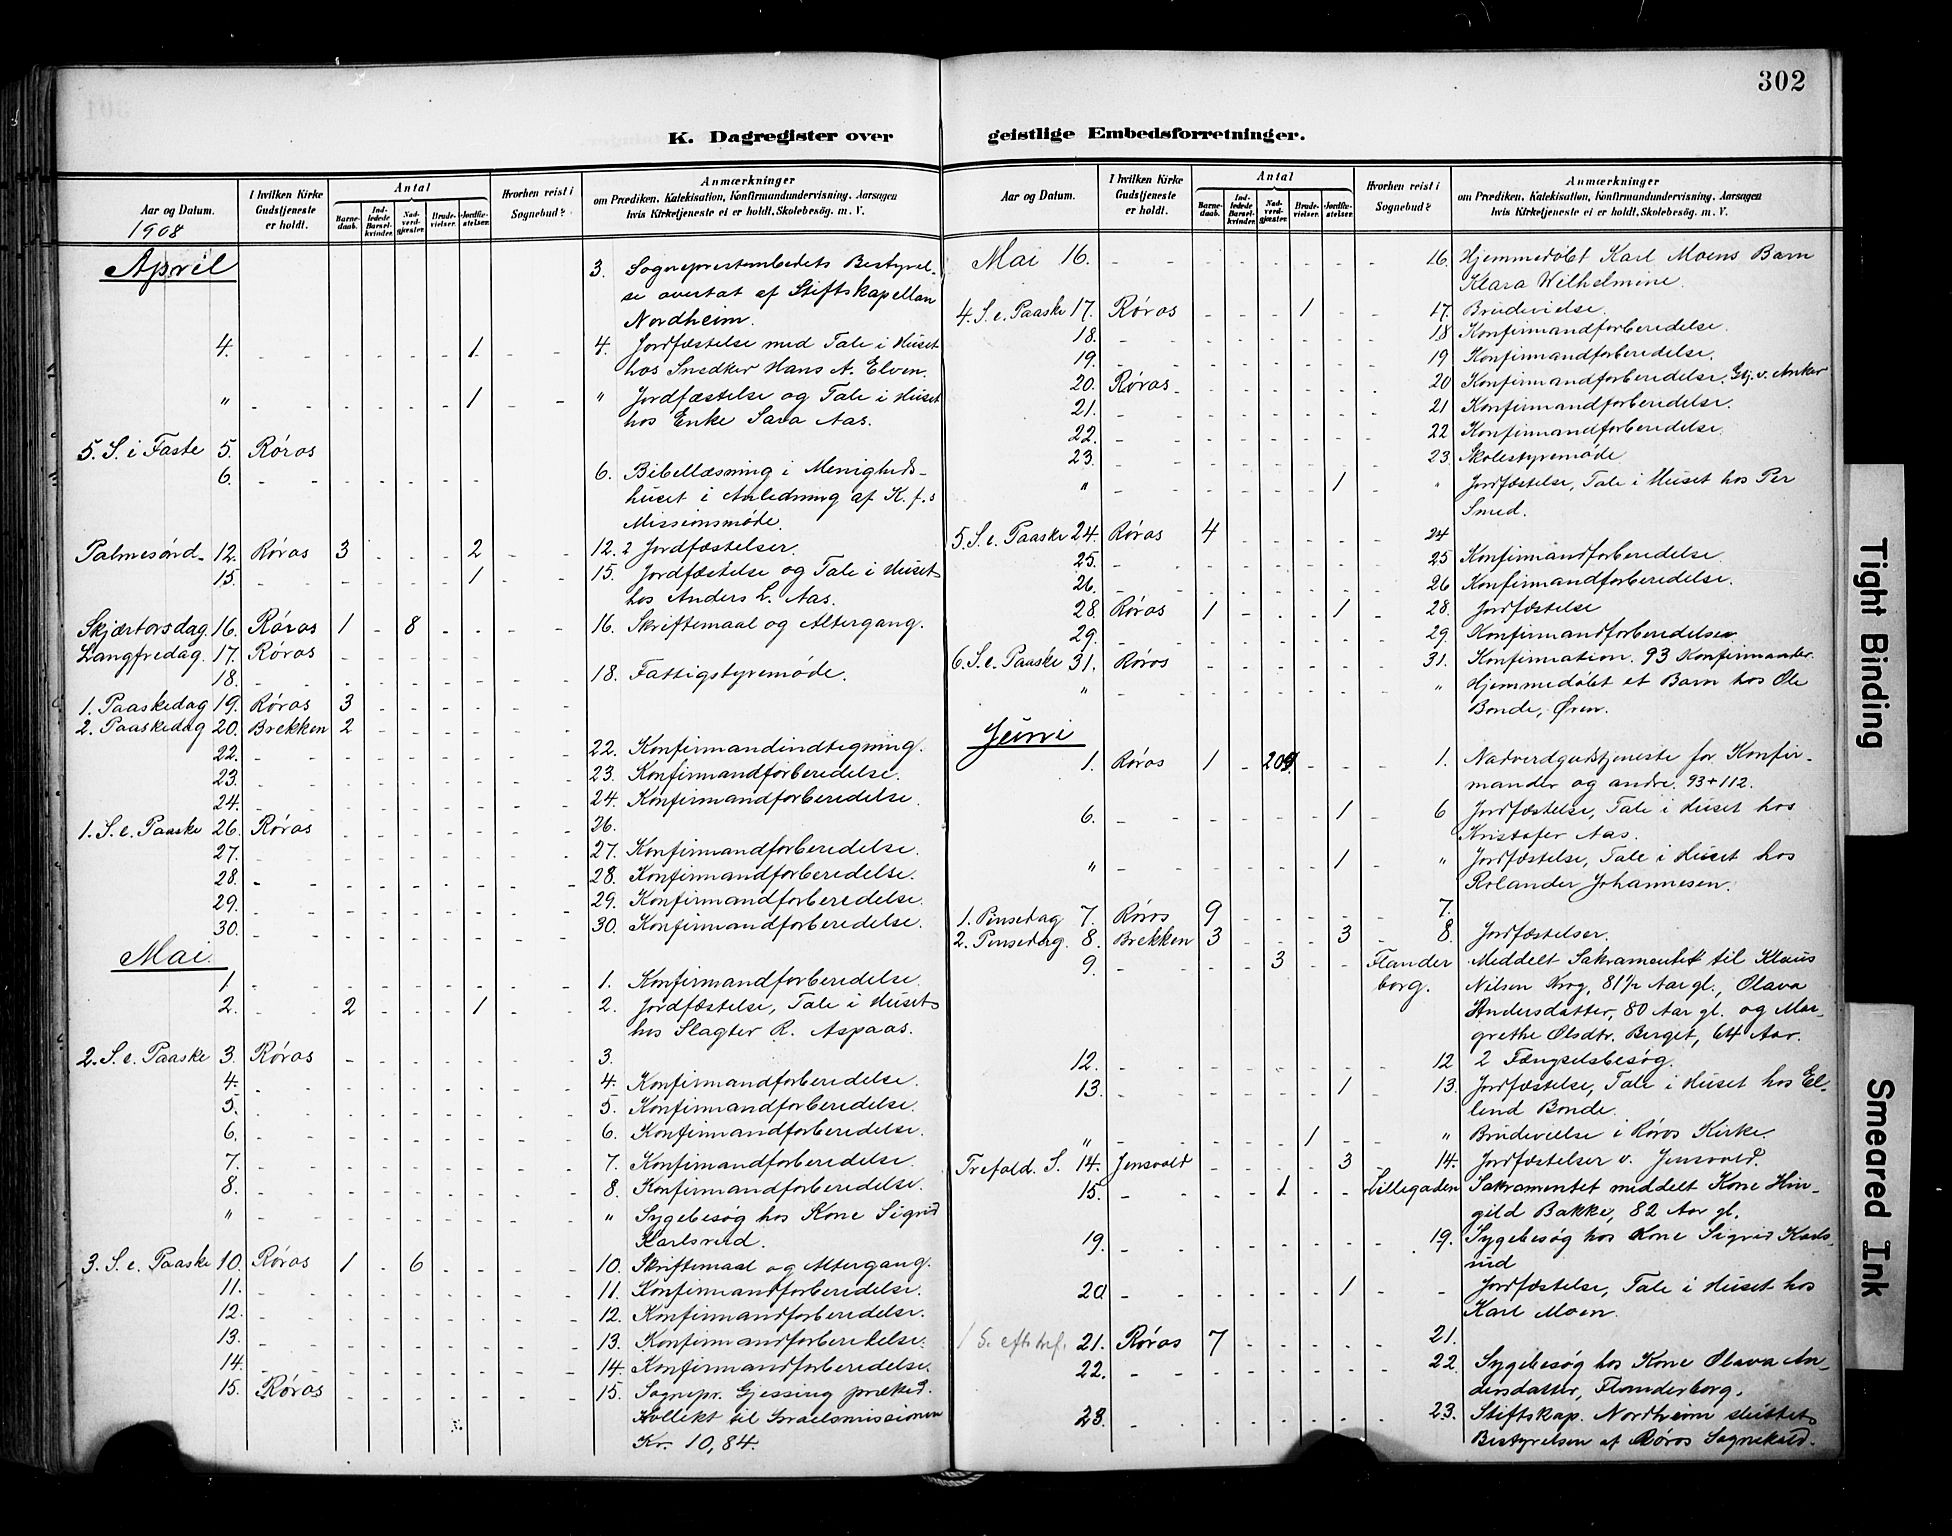 302
K. Dagregister over
geistlige Embedsforretninger.
Aar og Datum.
1908
I hvilken Kirke Gudstjeneste er holdt.
Antal
Barnedaab.
Indledede Barselkvinder.
Nadverdgjæster.
Brudevielser.
Jordfæstelser.
Hvorhen reist i Sognebud?
Anmærkninger
om Prædiken, Katekisation, Konfirmandundervisning, Aarsagen
hvis Kirketjeneste ei er holdt, Skolebesøg. m. V.
April
3. Sogneprestembedets Bestyrel-
se overtat af Stiftskapellan
Nordheim.
4. - - - - - - 1 - - 4. Jordfæstelse med Tale i Huset
hos Snedker Hans A. Elven.
" - - - - - - 1 - - " Jordfæstelse og Tale i Huset
hos Enke Sara Aas.
5. S. i Faste 5. Røros
6. - - 6. Bibellæsning i Menigheds-
huset i Anledning af K. f. s
Missionsmøde.
Palmesønd. 12. Røros 3 - - - 2 - - 12. 2 Jordfæstelser.
15. - - - - - - 1 - - 15. Jordfæstelse og Tale i Huset
hos Anders L. Aas.
Skjærtorsdag. 16. Røros 1 - 8 - - - - 16. Skriftemaal og Altergang.
Langfredag. 17. Røros - - - - - - -
18. - - - - - - - - - 18. Fattigstyremøde.
1. Paaskedag 19. Røros 3 - - - - - -
2. Paaskedag 20. Brekken 2 - - - - - -
22. - - - - - - - - - 22. Konfirmandindtegning.
23. - - - - - - - - - 23. Konfirmandforberedelse.
24. - - - - - - - - - 24. Konfirmandforberedelse.
1. S. e. Paaske 26. Røros - - - - - - - 26.
27. - - - - - - - - - 27. Konfirmandforberedelse.
28. - - - - - - - - - 28. Konfirmandforberedelse.
29. - - - - - - - - - 29. Konfirmandforberedelse.
30. - - - - - - - - - 30. Konfirmandforberedelse.
Mai.
1. - - - - - - - - - 1. Konfirmandforberedelse.
2. - - 2 - - - 1 - - 2. Jordfæstelse, Tale i Huset
hos Slagter R. Aspaas.
2. S. e. Paaske 3. Røros - - - - - - - 3.
4. - - - - - - - - - 4. Konfirmandforberedelse.
5. - - - - - - - - - 5. Konfirmandforberedelse.
6. - - - - - - - - - 6. Konfirmandforberedelse.
7. - - - - - - - - - 7. Konfirmandforberedelse.
8. - - - - - - - - - 8. Konfirmandforberedelse.
" - - - - - - - - - " Sygebesøg hos Kone Sigrid
Karlsveid.
3. S. e. Paaske 10. Røros 1 - 6 - - - - 10. Skriftemaal og Altergang.
11. - - - - - - - - - 11. Konfirmandforberedelse.
12. - - - - - - - - - 12. Konfirmandforberedelse.
13. - - - - - - - - - 13. Konfirmandforberedelse.
14. - - - - - - - - - 14. Konfirmandforberedelse.
15. Røros - - - - - - - 15. Sognepr. Gjessing præked.
Kollekt til Israelsmissionen
Kr. 10,84.
Aar og Datum.
I hvilken Kirke Gudstjeneste er holdt.
Antal
Barnedaab.
Indledede Barselkvinder.
Nadverdgjæster.
Brudevielser.
Jordfæstelser.
Hvorhen reist i Sognebud?
Anmærkninger
om Prædiken, Katekisation, Konfirmandundervisning, Aarsagen
hvis Kirketjeneste ei er holdt, Skolebesøg. m. V.
Mai 16. - - - - - - - - 16. Hjemmedøbt Karl Moens Barn
Klara Wilhelmine.
4. S. e. Paaske 17. Røros - - - 1 - - 17. Brudevielse.
18. - - - - - - - - 18 Konfirmandforberedelse.
19. - - - - - - - - 19 Konfirmandforberedelse.
20. Røros - - - - - - 20 Konfirmandforberedelse. Gtj. v. Anker
21. - - - - - - - - 21 Konfirmandforberedelse.
22. - - - - - - - - 22 Konfirmandforberedelse.
23. - - - - - - - - 23. Skolestyremøde
" - - - - - - 1 - " Jordfæstelse, Tale i Huset hos Per
Smed.
5. S. e. Paaske 24. Røros 4 - - - - - 24
25. - - - - - - - - 25 Konfirmandforberedelse.
26. - - - - - - - - 26 Konfirmandforberedelse.
28. Røros 1 - - - 1 - 28. Jordfæstelse
29. - - - - - - - - 29. Konfirmandforberedelse.
6. S. e. Paaske 31. Røros - - - - - - 31. Konfirmation. 93 Konfirmander.
" - - - - - - - - " Hjemmedøbt et Barn hos Ole
Bonde, Øren.
Juni
1. Røros 1 - 205 - - - 1. Nadverdgudstjeneste for Konfir-
mander og andre. 93+112.
6. - - - - - - 1 - 6 Jordfæstelse, Tale i Huset hos
Kristofer Aas.
" - - - - - - 1 - " Jordfæstelse, Tale i Huset hos
Rolander Johannesen.
1. Pinsedag 7. Røros 9 - - - - - 7.
2. Pinsedag. 8. Brekken 3 - - - 3 - 8. Jordfæstelser.
9. - - - - 3 - - Flanderborg. Meddelt Sakramentet til Klaus
Nilsen Krog, 81½ Aar gl., Olava
Andersdatter, 80 Aar gl. og Mar-
grethe Olsdtr. Berget, 64 Aar.
12. - - - - - - - - 12 2 Fængselsbesøg.
13. - - - - - - 1 - 13. Jordfæstelse, Tale i Huset hos El-
lend Bonde.
" - - - - - 1 - - " Brudevielse i Røros Kirke.
Trefold. S. 14. Jensvold - - - - 3 - 14. Jordfæstelser v. Jensvold.
15. - - - - 1 - - Lillegaden Sakramentet meddelt Kone Hin-
gild Bakke, 82 Aar gl.
19. - - - - - - - - 19. Sygebesøg hos Kone Sigrid Karls-
veid
20 - - - - - - 1 - - Jordfæstelse, Tale i Huset hos
Karl Moen.
1 S. eft tref. 21. Røros 7 - - - - - 21.
22. - - - - - - - - 22. Sygebesøg hos Kone Olava An-
dersdatter, Flanderborg.
23. - - - - - - - - 23. Stiftskap. Nordheim sluttet
Bestyrelsen af Røros Sognekald.
Tight Binding
Smeared Ink